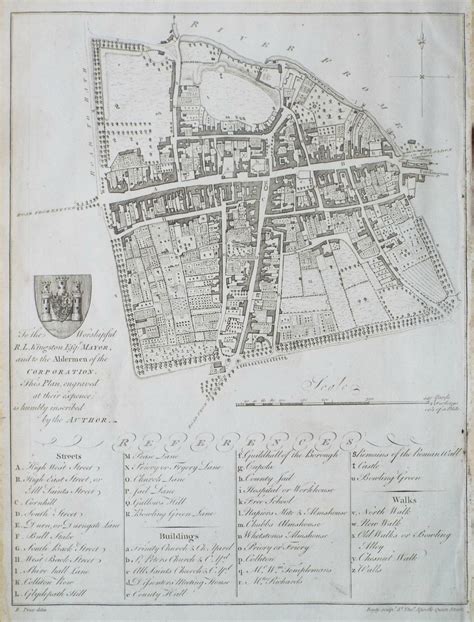 RIVER FROME
ROAD FROM
To the Worshipful
R. L. Kingston Esqr. MAYOR,
and to the Aldermen of the
CORPORATION.
This Plan, engraved
at their expence,
is humbly inscribed
by the AUTHOR.
Scale
REFERENCES
Streets
A. High West Street
B. High East Street, or
All Saints Street
C. Cornhill
D. South Street
E. Durn, or Durngate Lane
F. Bull Stake
G. South Back Street
H. West Back Street
I. Shire hall Lane
K. Colliton Row
L. Glydepath Hill
M. Pease Lane
N. Priory or Friery Lane
O. Church Lane
P. Jail Lane
Q. Gallows Hill
R. Bowling Green Lane
Buildings
a. Trinity Church & Ch. Yard
b. St. Peters Church & C. Yd.
c. All Saints Church & C. Yd.
d. Dissenters Meeting House
e. County Hall
f. Guildhall of the Borough
g. Cupola
h. County Jail
i. Hospital or Workhouse
k. Free School
l. Napiers Mite & Almshouse
m. Chubbs Almshouse
n. Whetstons Almshouse
o. Priory or Friery
p. Colliton
q. Mr. Wm. Templemans
r. Mr. Richards
s. Remains of the Roman Wall
t. Castle
u. Bowling Green
Walks
v. North Walk
w. New Walk
x. Old Walks or Bowling
Alley
y. Chesnut Walk
z. Walls